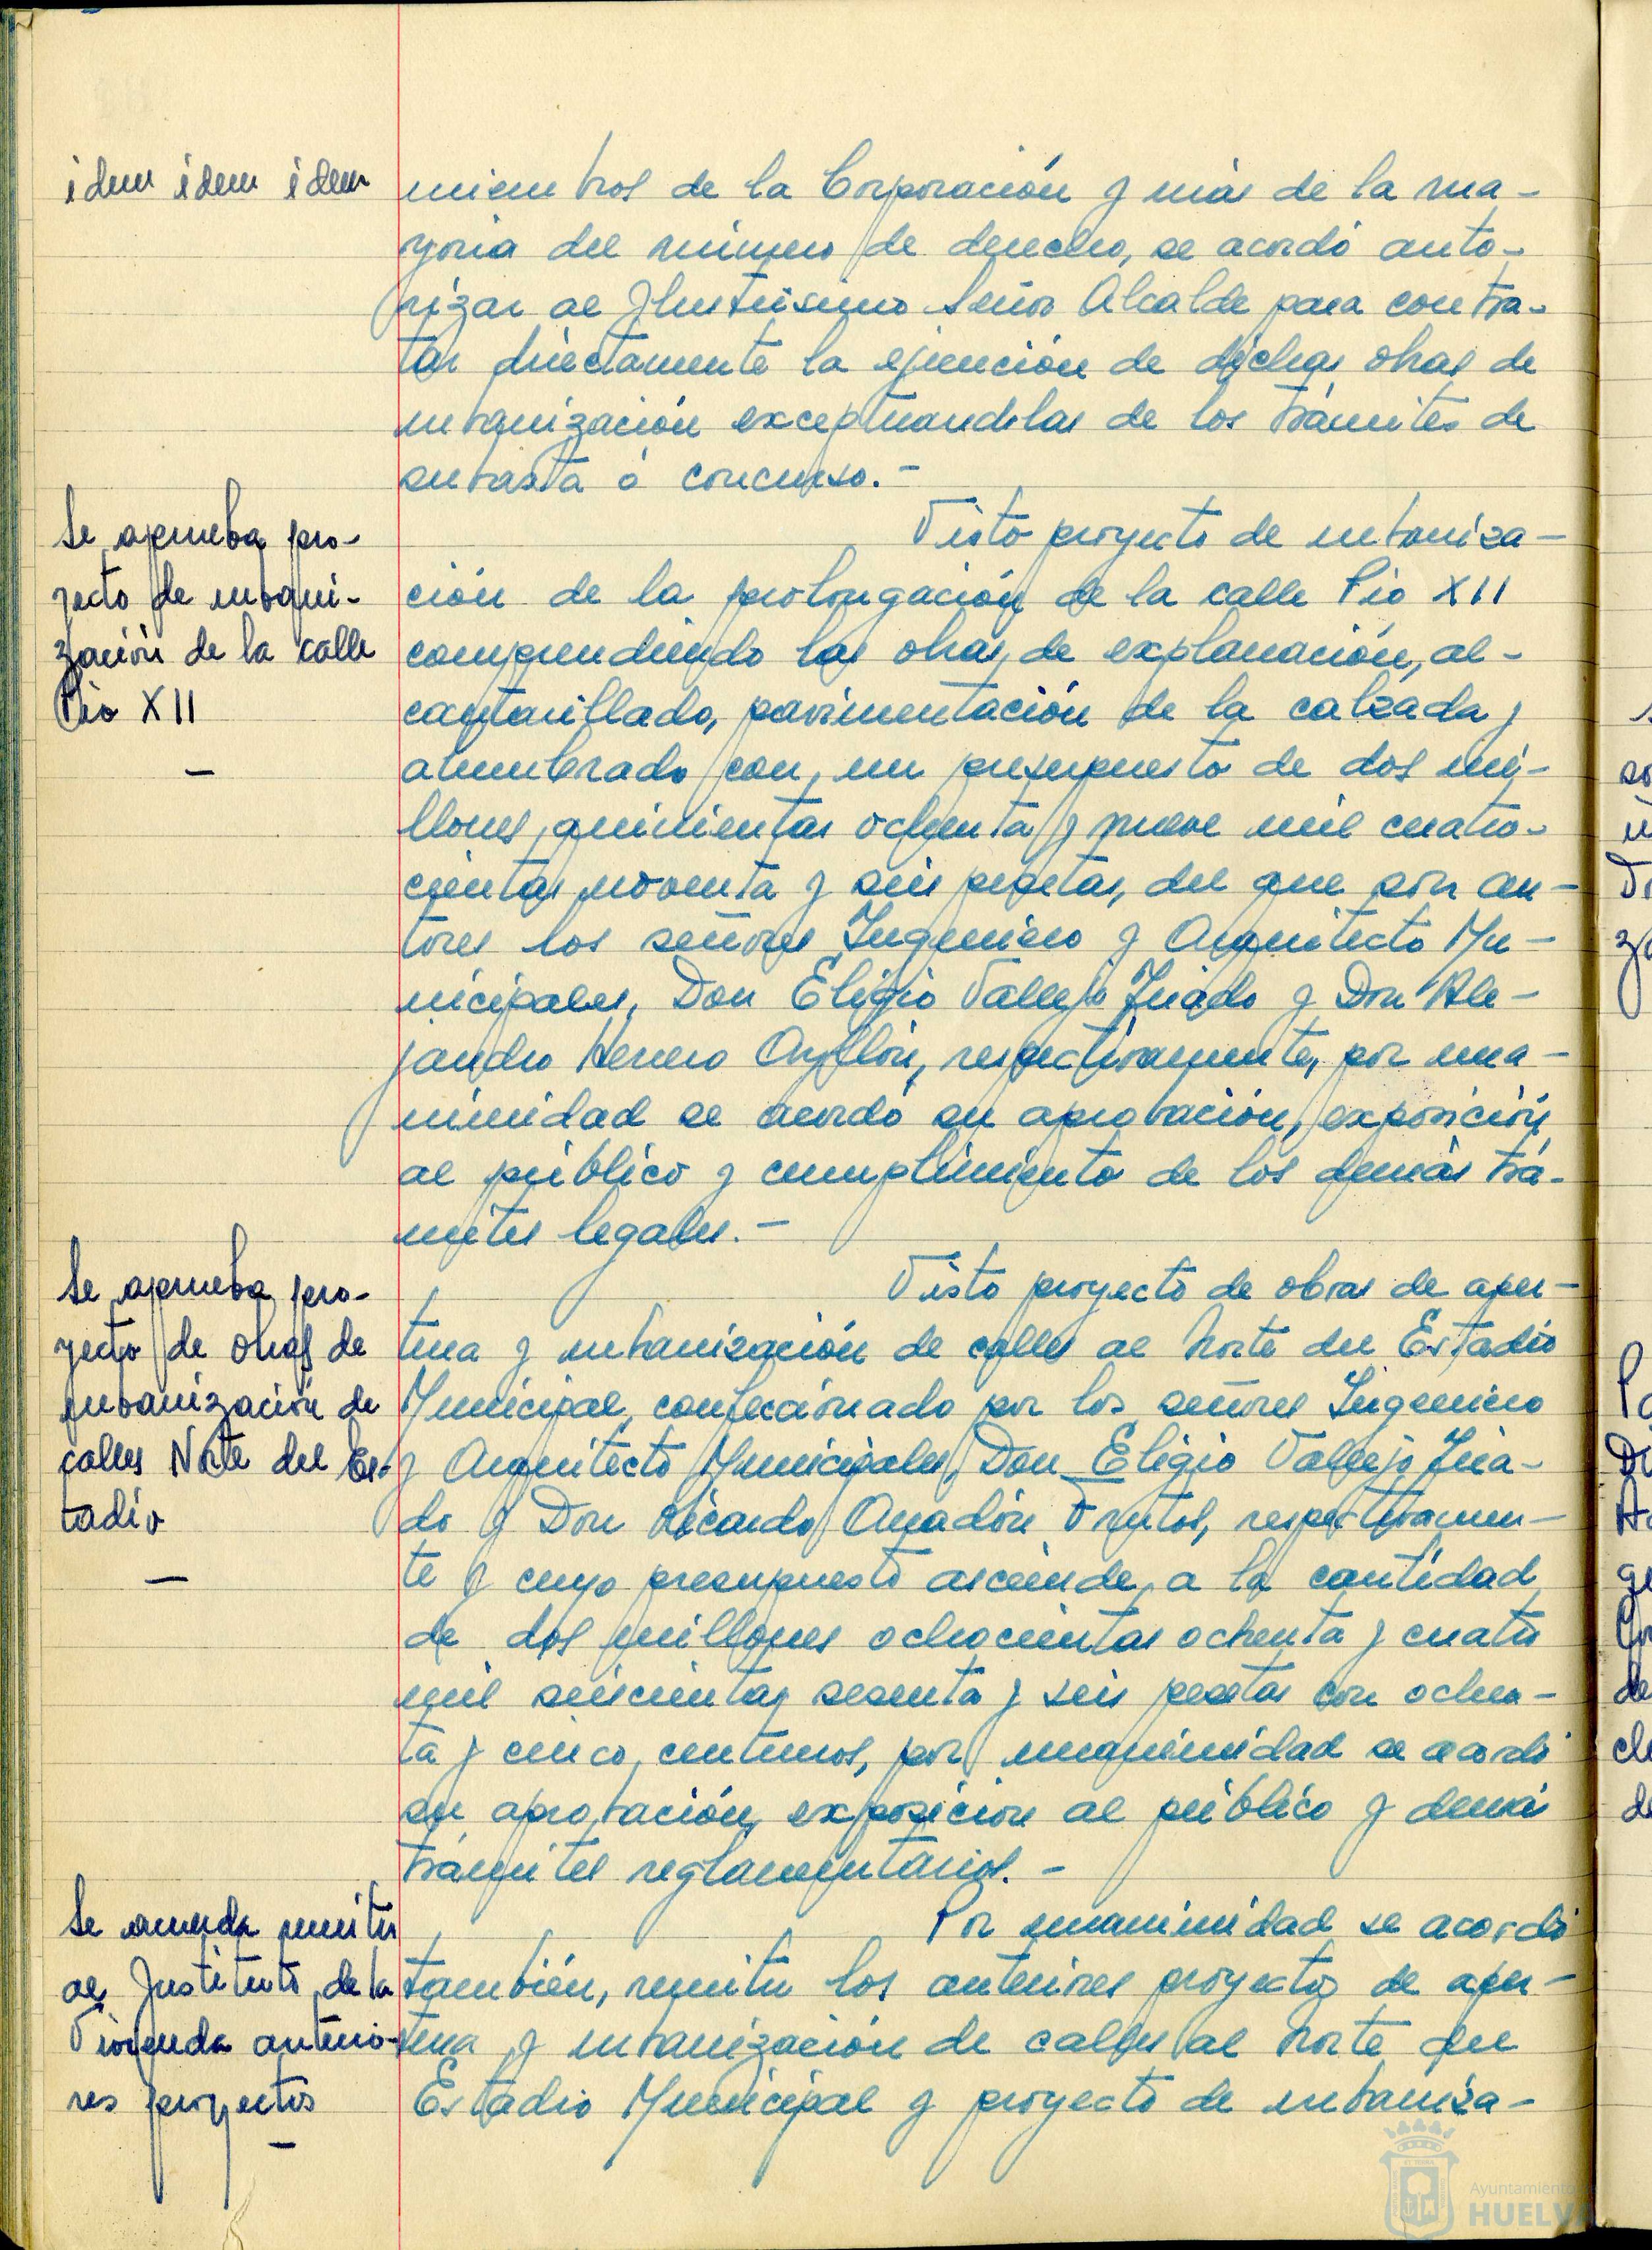 idem idem idem
miembros de la Corporación y más de la ma-
yoria del número de derecho, se acordó auto-
rizar al Ilustrisimo Señor Alcalde para contra-
tar directamente la ejecución de dichas obras de
urbanización exceptuandolas de los trámites de
subasta ó concurso.-
Se aprueba pro-
yecto de urbani-
zación de la calle
Pio XII
Visto proyecto de urbaniza-
ción de la prolongación de la calle Pio XII
comprendiendo las obras de explanación, al-
cantarillado, pavimentación de la calzada y
alumbrado con un presupuesto de dos mi-
llones, quinientas ochenta y nueve mil cuatro-
cientas noventa y seis pesetas, del que son au-
tores los señores Ingeniero y Arquitecto Mu-
nicipales, Don Eligio Vallejo Jurado y Don Ale-
jandro Herrero Ayllón, respectivamente, por una-
nimidad se acordó su aprobación, exposición
al público y cumplimiento de los demás trá-
mites legales.-
Se aprueba pro-
yecto de obras de
urbanización de
calles Norte del Es-
tadio
Visto proyecto de obras de aper-
tura y urbanización de calles al Norte del Estadio
Municipal, confeccionado por los señores Ingeniero
y Arquitecto Municipales, Don Eligio Vallejo Jura-
do y Don Ricardo Anadón Frutos, respectivamen-
te y cuyo presupuesto asciende a la cantidad
de dos millones ochocientas ochenta y cuatro
mil seiscientas sesenta y seis pesetas con ochen-
ta y cinco centimos, por unanimidad se acordó
su aprobación, exposición al público y demás
trámites reglamentarios.-
Se acuerda remitir
al Instituto de la
Vivienda anterio-
res proyectos
Por unanimidad se acordó
también, remitir los anteriores proyectos de aper-
tura y urbanización de calles al Norte del
Estadio Municipal y proyecto de urbaniza-
Ayuntamiento
HUELVA